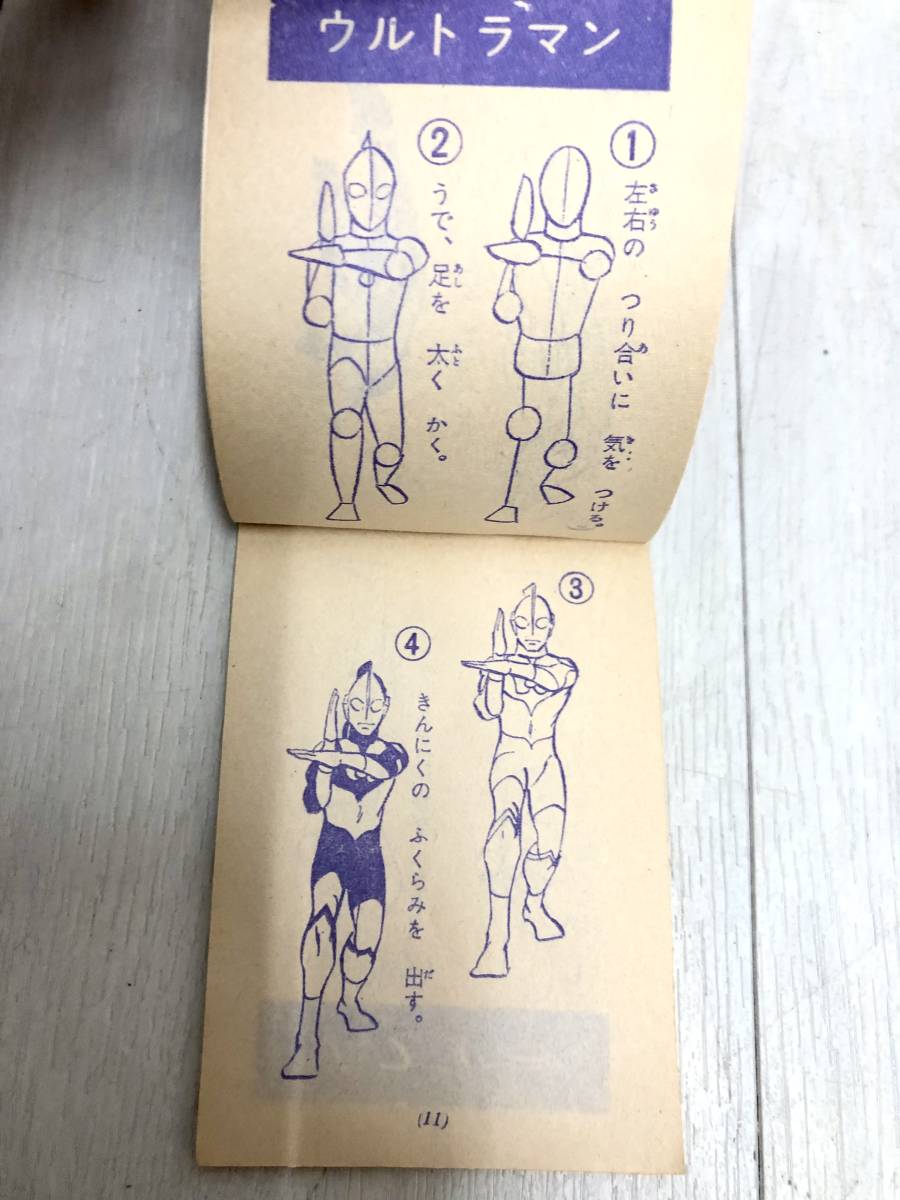 ウルトラマン
①
左右の つり合いに 気を つける。
②
うで、足を 太く かく。
③
④
きんにくの ふくらみを 出す。
(11)